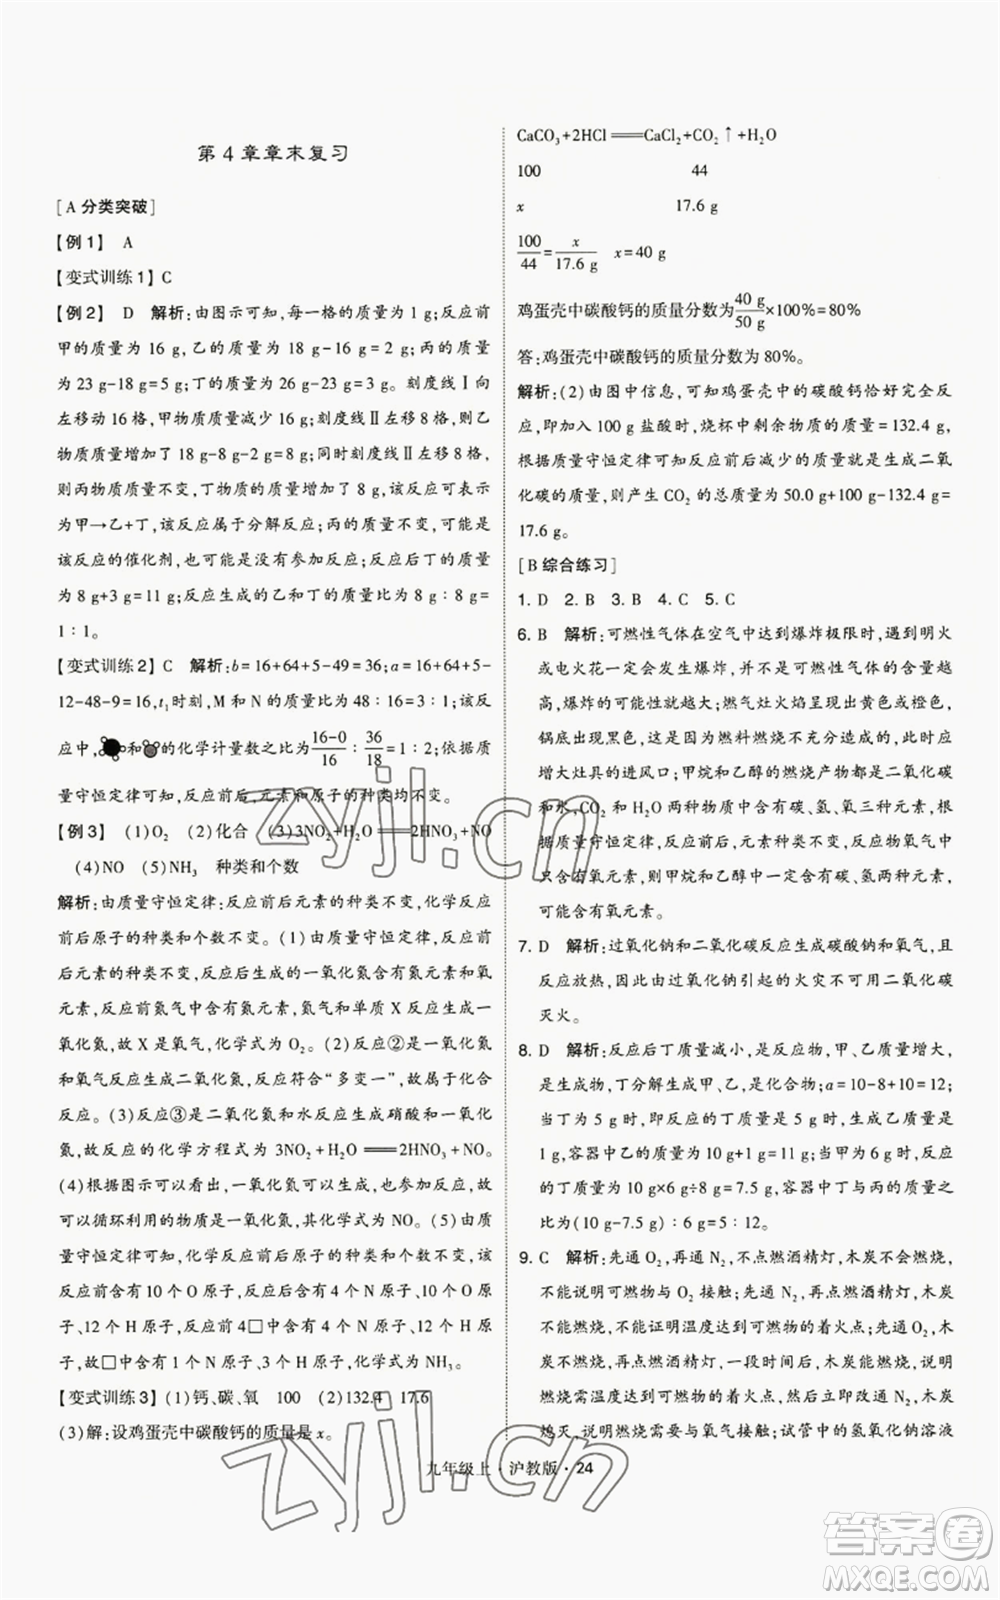 第4章章末复习
[A 分类突破]
【例1】 A
【变式训练1】C
【例2】 D 解析:由图示可知,每一格的质量为1 g;反应前
甲的质量为 16 g,乙的质量为 18 g-16 g=2 g;丙的质量
为23 g-18 g=5 g;丁的质量为 26 g-23 g=3 g。刻度线Ⅰ向
左移动16格,甲物质质量减少16 g;刻度线Ⅱ左移8格,则乙
物质质量增加了16 g-8 g=8 g;同时刻度线Ⅱ左移8格,
则丙物质质量不变,丁物质的质量增加了8 g。该反应可表示
为甲→乙+丁,该反应属于分解反应;丙的质量不变,可能是
该反应的催化剂,也可能是没有参加反应;反应后丁的质量
为8 g+3 g=11 g;反应生成的乙和丁的质量比为8 g∶8 g=
1∶1。
【变式训练2】C 解析:b=16+64+5-49=36;a=16+64+5-
12-48-9=16,t₁时刻,M和N的质量比为48∶16=3∶1;该反
应中,和的化学计量数之比为16-0/16∶36/18=1∶2;依据质
量守恒定律可知,反应前后,元素和原子的种类均不变。
【例3】 (1)O₂ (2)化合 (3)3NO₂+H₂O══2HNO₃+NO
(4)NO (5)NH₃ 种类和个数
解析:由质量守恒定律:反应前后元素的种类不变,化学反应
前后原子的种类和个数不变。(1)由质量守恒定律,反应前
后元素的种类不变,反应后生成的一氧化氮含有氮元素和氧
元素,反应前氮气中含有氮元素,氮气和单质X反应生成
一氧化氮,故X是氧气,化学式为O₂。(2)反应②是一氧化氮
和氧气反应生成二氧化氮,反应符合“多变一”,故属于化合
反应。(3)反应③是二氧化氮和水反应生成硝酸和一氧化
氮,故反应的化学方程式为 3NO₂+H₂O══2HNO₃+NO。
(4)根据图示可以看出,一氧化氮可以生成,也参加反应,故
可以循环利用的物质是一氧化氮,其化学式为NO。(5)由质
量守恒定律可知,化学反应前后原子的种类和个数不变,该
反应后共有10个O原子、4个N原子、12个H原子,反应前
除4□外共有10个O原子,故4□中含有4个N原
子、12个H原子,故□中含有1个N原子、3个H原子,故□的化学式为NH₃。
【变式训练3】(1)钙、碳、氧 100 (2)132.4 17.6
(3)解:设鸡蛋壳中碳酸钙的质量是x。
CaCO₃+2HCl══CaCl₂+CO₂↑+H₂O
100 44
x 17.6 g
100/44=x/17.6 g x=40 g
鸡蛋壳中碳酸钙的质量分数为40 g/50 g×100%=80%
答:鸡蛋壳中碳酸钙的质量分数为80%。
解析:(2)由图中信息,可知鸡蛋壳中的碳酸钙恰好完全反
应,即加入100 g盐酸时,烧杯中剩余物质的质量=132.4 g,
根据质量守恒定律可知反应前后减少的质量就是生成二氧
化碳的质量,则产生CO₂的总质量为50.0 g+100 g-132.4 g=
17.6 g。
[B 综合练习]
1. D 2. B 3. B 4. C 5. C
6. B 解析:可燃性气体在空气中达到爆炸极限时,遇到明火
或电火花一定会发生爆炸,并不是可燃性气体的含量越
高,爆炸的可能性就越大;燃气灶火焰呈现出黄色或橙色,
锅底出现黑色,是因为燃料燃烧不充分造成的,此时应增
大灶具的进风口;甲烷和乙醇的燃烧产物都是二氧化碳
和水,CO₂和H₂O两种物质中含有碳、氢、氧三种元素,
根据质量守恒定律,反应前后元素种类不变,而氧气中
只含有氧元素,则甲烷和乙醇中一定含有碳、氢元素,可
能含有氧元素。
7. D 解析:过氧化钠和二氧化碳反应生成碳酸钠和氧气,且
反应放热,因此由过氧化钠引起的火灾不可用二氧化碳
灭火。
8. D 解析:反应后丁质量减小,是反应物,甲、乙质量增大,
是生成物,丁分解生成甲、乙,是化合物;a=10-8+10=12;
当丁为5 g时,即反应的丁质量为5 g时,生成乙质量为
1 g,容器中乙的质量为10 g+1 g=11 g;当甲为6 g时,反应
的丁质量为10 g×6 g÷8 g=7.5 g,容器中丁与丙的质量之
比为(10 g-7.5 g)∶6 g=5∶12。
9. C 解析:先通O₂,再通N₂,不点燃酒精灯,木炭不会燃烧,
不能说明可燃物需要与O₂接触;先通N₂,再点燃酒精灯,木炭
不能燃烧,不能证明温度达到可燃物的着火点;先通O₂,
不能燃烧,再点燃酒精灯,一段时间后,木炭能燃烧,说明
燃烧需温度达到可燃物的着火点,然后立即改通N₂,木炭
熄灭,说明燃烧需要与氧气接触;试管中的氢氧化钠溶液
九年级上·沪教版·24
zyjl.cn
zyjl.cn
答案圈
MXQE.COM